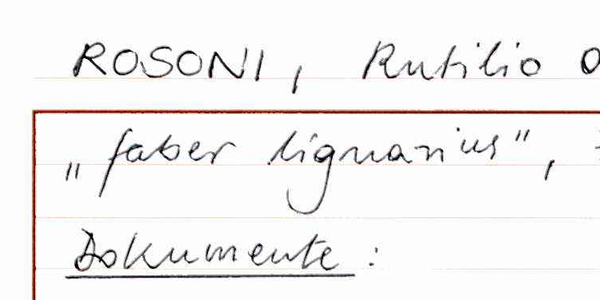 ROSONI, Rutilio
„faber lignarius",
Dokumente: